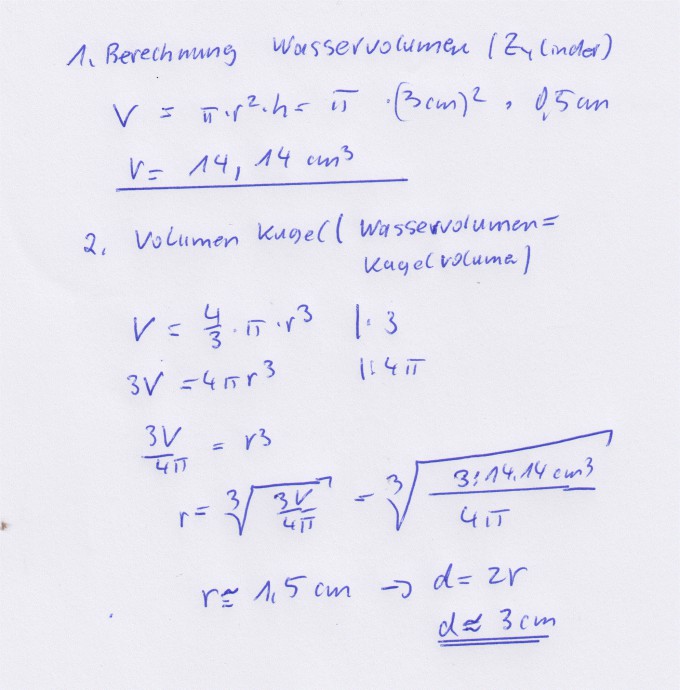 1. Berechnung Wasservolumen (Zylinder)
V = π·r²·h = π ·(3cm)² · 0,5cm
V = 14,14 cm³
2. Volumen Kugel ( Wasservolumen =
Kugelvolumen)
V = 4/3 · π · r³ |· 3
3V = 4πr³ |: 4π
3V/4π = r³
r = ³√(3V/4π) = ³√(3·14,14 cm³/4π)
r ≈ 1,5 cm → d = 2r
d ≈ 3 cm